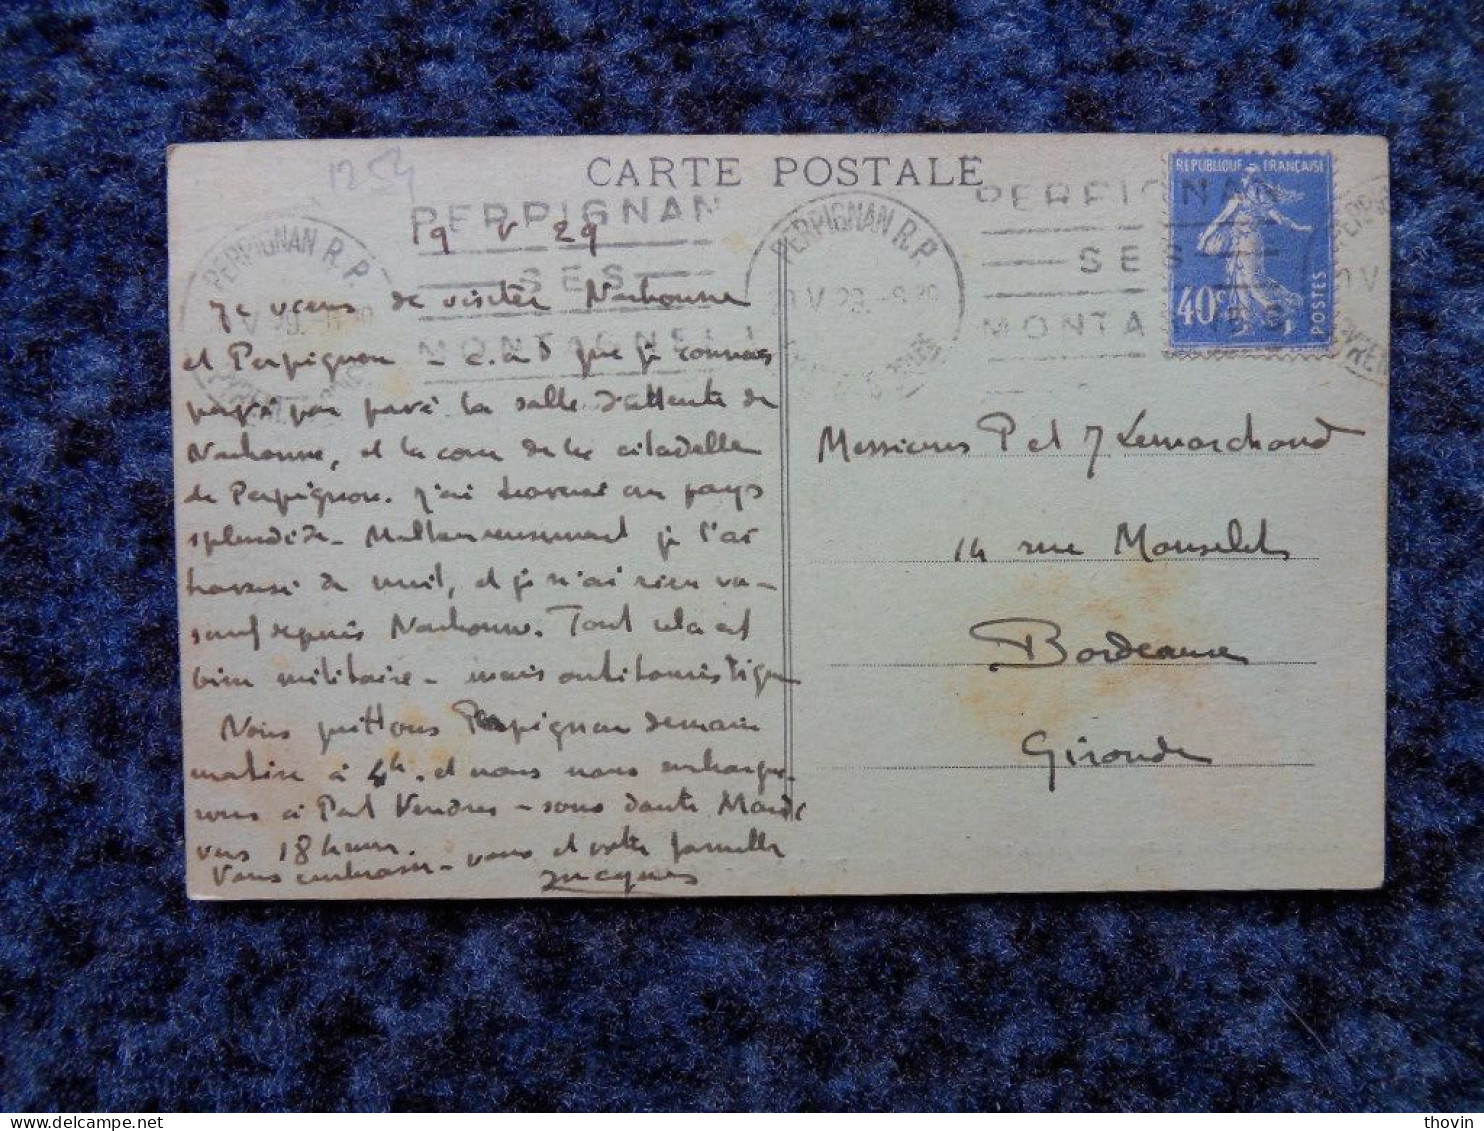 1254
CARTE POSTALE
PERPIGNAN
SES
PERPIGNAN R.P.
PERPIGNAN R.P.
V 29. - 9 30
PERPIGNAN
SES
MONTA
REPUBLIQUE FRANÇAISE
40c
POSTES
19 V 29
Je viens de visiter Narbonne
et Perpignan - c. à d que je connais
pavé par pavé la salle d'attente de
Narbonne, et la cour de la citadelle
de Perpignan. J'ai traversé un pays
splendide - Malheureusement je l'ai
traversé de nuit, et je n'ai rien vu -
sauf depuis Narbonne. Tout cela est
bien militaire - mais antitouristique
Nous quittons Perpignan demain
matin à 4h. et nous nous embarque-
rons à Port Vendres - sans doute Mardi
vers 18 heures.
Vous embrasse - vous et votre famille
Jacques
Messieurs P et J Lemarchand
14 rue Monselet
Bordeaux
Gironde
thovin